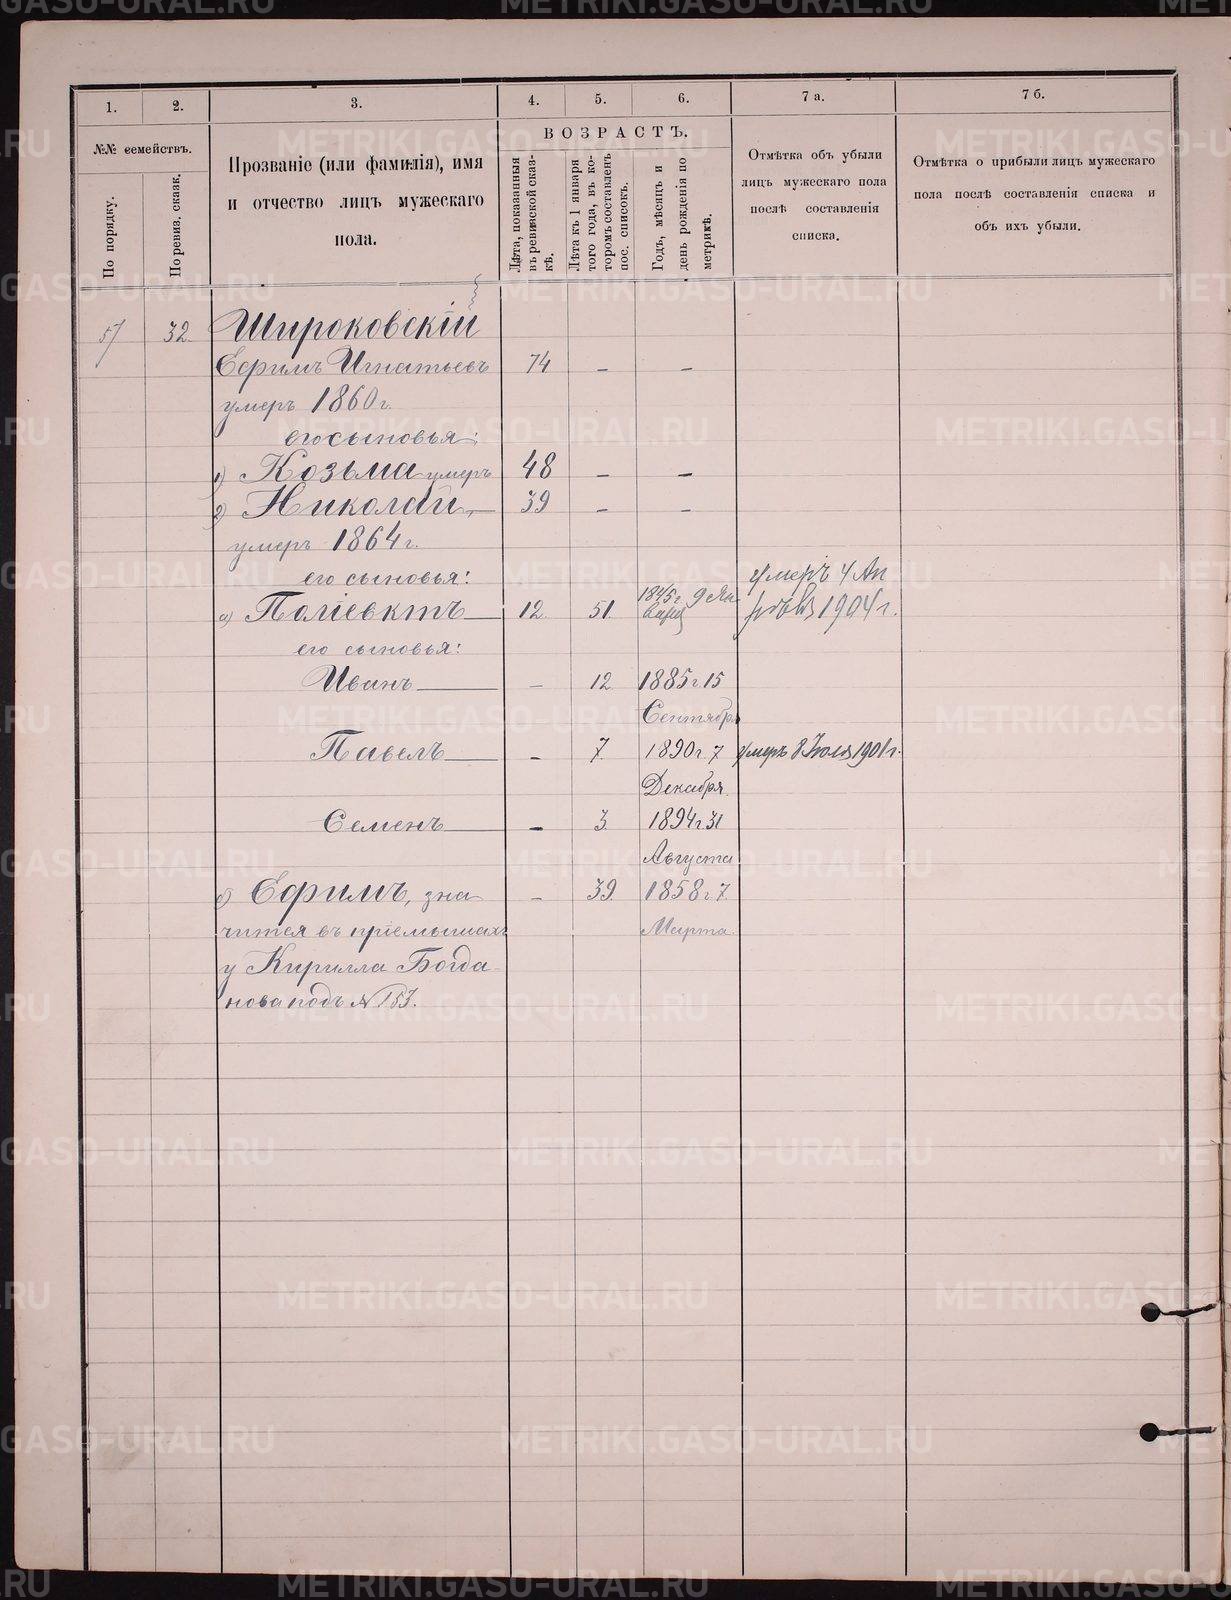 1. 2. 3. 4. 5. 6. 7 а. 7 б.
№№ семействъ.
По порядку.
По ревиз. сказк.
Прозваніе (или фамилія), имя
и отчество лицъ мужескаго
пола.
ВОЗРАСТЪ.
Лѣта, показанныя
въ ревизской сказ-
кѣ.
Лѣта къ 1 января
того года, въ ко-
торомъ составленъ
пос. списокъ.
Годъ, мѣсяцъ и
день рожденія по
метрикѣ.
Отмѣтка объ убыли
лицъ мужескаго пола
послѣ составленія
списка.
Отмѣтка о прибыли лицъ мужескаго
пола послѣ составленія списка и
объ ихъ убыли.
57 32. Широковскій
Ефимъ Игнатьевъ 74 – –
умеръ 1860 г.
его сыновья:
1) Козьма умеръ 48 – –
2) Николай, 39 – –
умеръ 1864 г.
его сыновья: умеръ 4 Ап
а) Поліевктъ 12. 51. 1845 г. 9 Ян
варя рѣля 1904 г.
его сыновья:
Иванъ – 12 1885 г. 15
Сентября
Павелъ – 7. 1890 г. 7 умеръ 8 Іюля 1901 г.
Декабря
Семенъ – 3. 1894 г. 31
Августа
б) Ефимъ, зна – 39. 1858 г. 7.
чится въ пріемышахъ Марта.
у Кирилла Богда-
нова подъ № 153.
METRIKI.GASO-URAL.RU